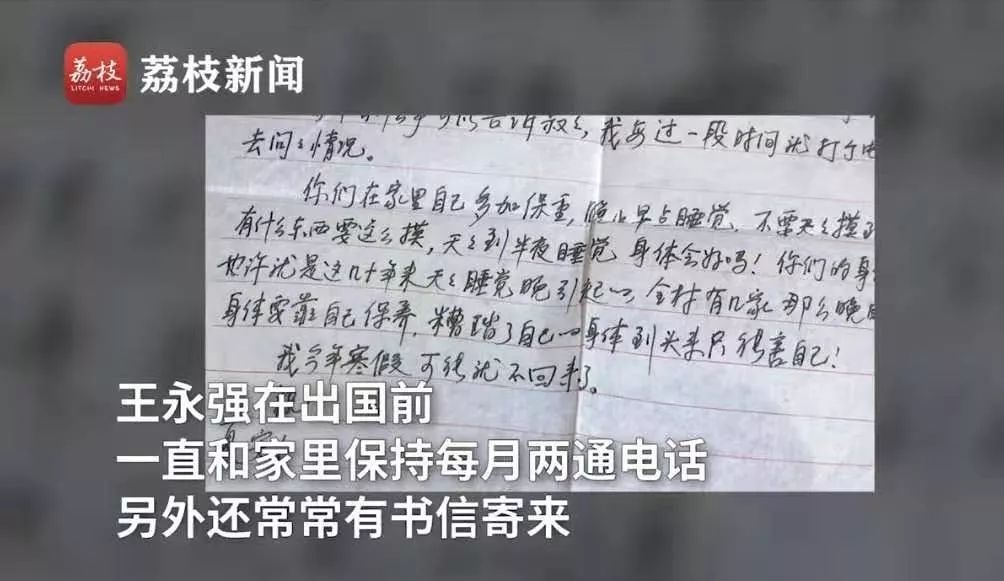 荔枝
LITCHI NEWS
荔枝新闻
可以告诉叔叔,我每过一段时间就打个电
去问问情况。
你们在家里自己多加保重,晚上早点睡觉,不要天天摸到
有什么东西要这么摸,天天到半夜睡觉 身体会好吗!你们的身
也许就是这几十年来天天睡觉晚引起的,全村有几家那么晚
身体要靠自己保养,糟踏了自己的身体到头来只能害自己!
我今年寒假可能就不回来了。
祝
王永强在出国前
一直和家里保持每月两通电话
另外还常常有书信寄来